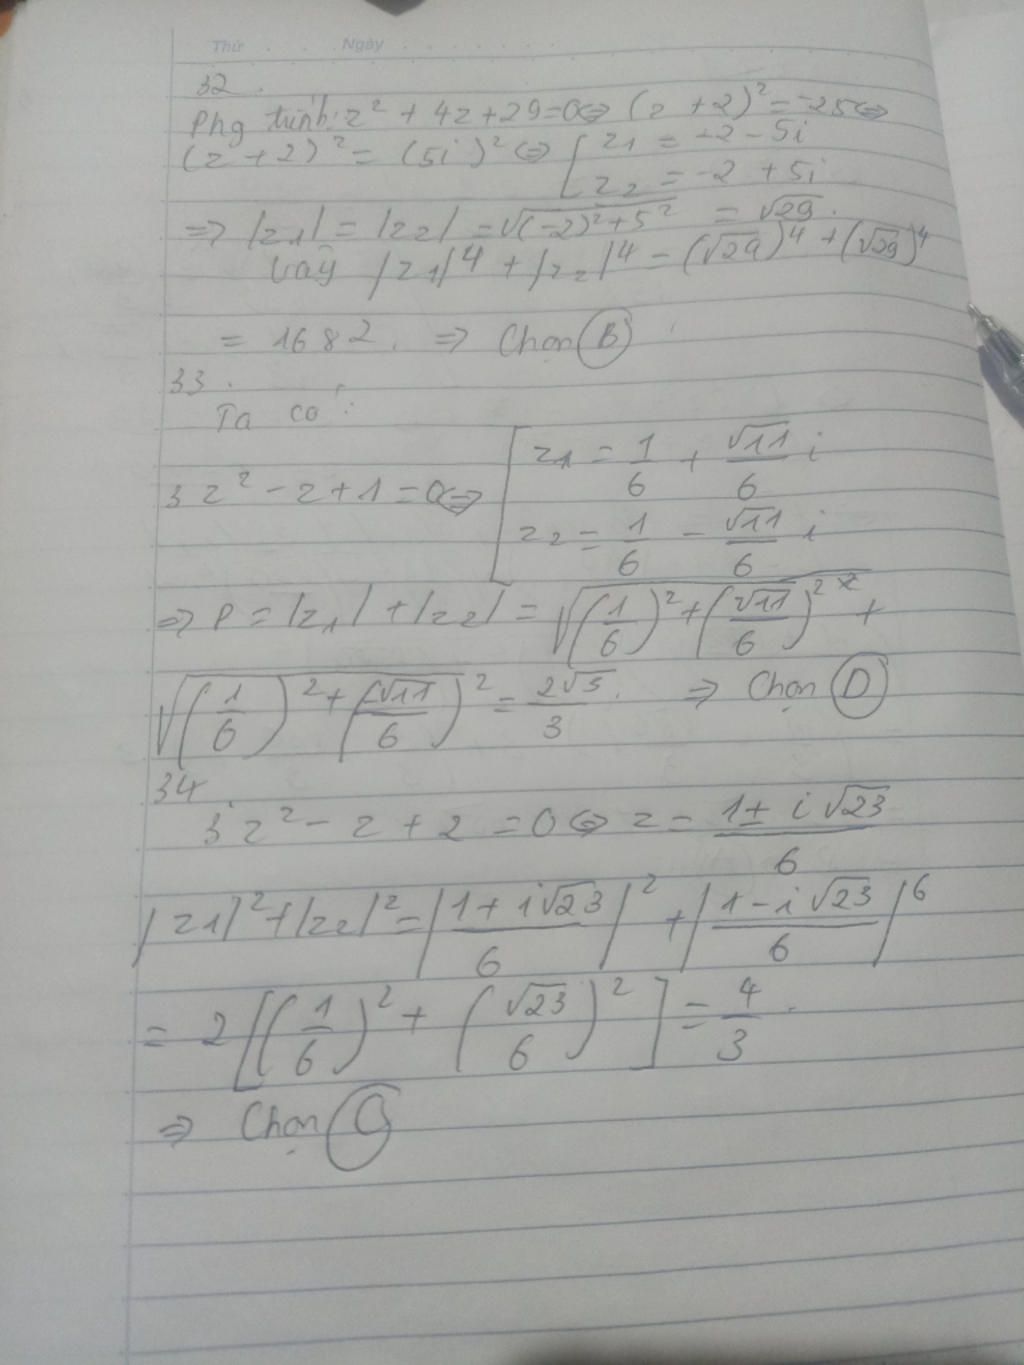 Thứ . . . Ngày . . . . . . .
32.
Phg trình: z² + 4z + 29 = 0 ⇔ (z + 2)² = -25 ⇔
(z + 2)² = (5i)² ⇔ [ z1 = -2 - 5i
z2 = -2 + 5i
⇒ |z1| = |z2| = √((-2)² + 5²) = √29.
Vậy |z1|⁴ + |z2|⁴ = (√29)⁴ + (√29)⁴
= 1682. ⇒ Chọn B
33.
Ta có:
3z² - z + 1 = 0 ⇔ [ z1 = 1/6 + √11/6 i
z2 = 1/6 - √11/6 i
⇒ P = |z1| + |z2| = √((1/6)² + (√11/6)²) +
√((1/6)² + (-√11/6)²) = 2√3/3. ⇒ Chọn D
34.
3z² - z + 2 = 0 ⇔ z = (1 ± i√23)/6
|z1|² + |z2|² = |(1 + i√23)/6|² + |(1 - i√23)/6|⁶
= 2[(1/6)² + (√23/6)²] = 4/3.
⇒ Chọn C